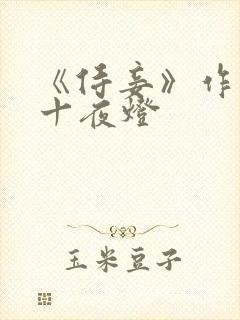 《侍妾》作
十夜燈
玉米豆子